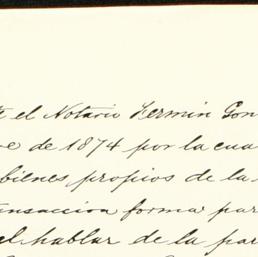 te el Notario Fermin Gon
re de 1874 por la cua
bienes propios de la
ensaccion forma par
el hablar de la par